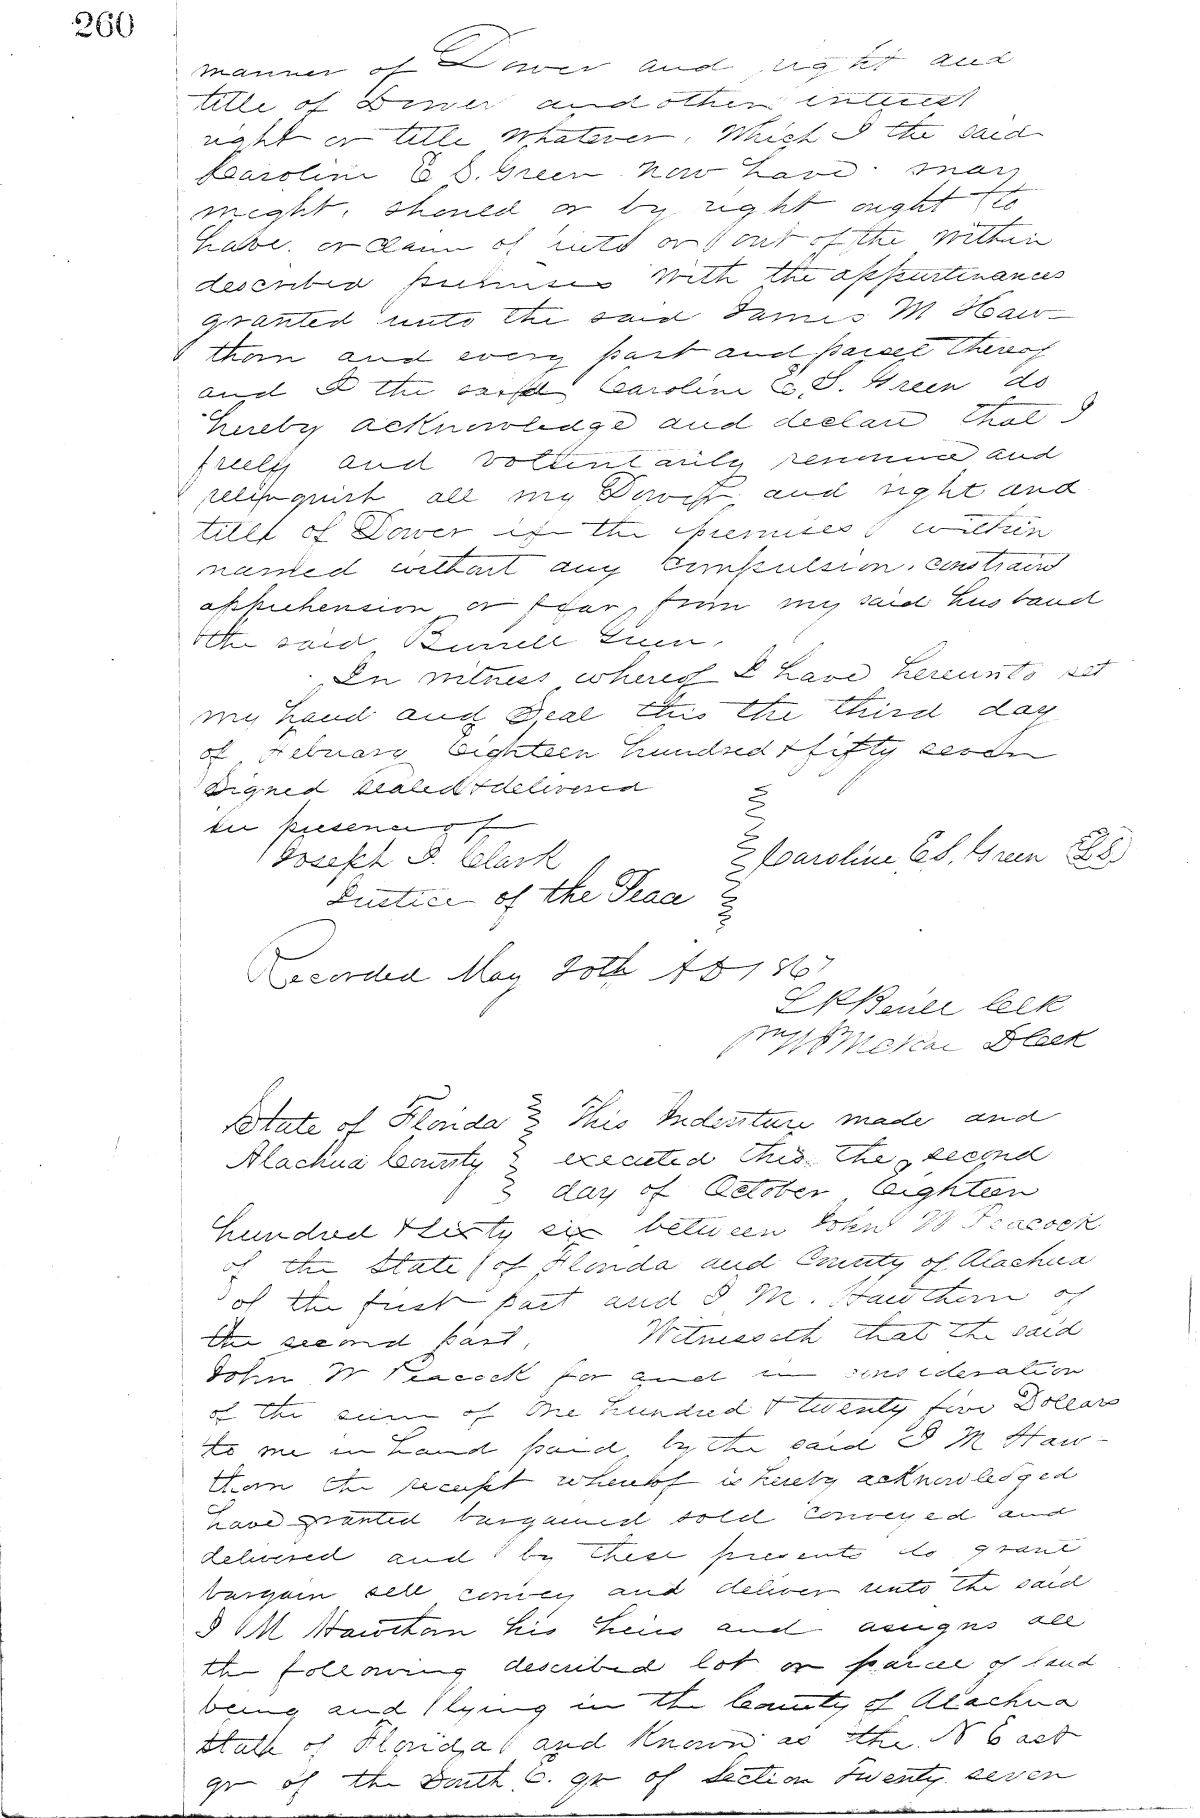 260
manner of Dower and right and
title of Dower and other interest
right or title whatever. Which I the said
Caroline E S. Green now have. may
might, should or by right ought to
have. or claim of into or out of the within
described premises with the appurtinances
granted unto the said James M Haw-
thorn and every part and parcel thereof
and I the said Caroline E. S. Green do
hereby acknowledge and declare that I
freely and voluntarily renounce and
relinquish all my Dower and right and
title of Dower in the premises within
named without any compulsion. constraint
apprehension or fear, from my said husband
the said Burrell Green.
In witness whereof I have hereunto set
my hand and Seal this the third day
of Febuary Eighteen hundred & fifty seven
Signed Sealed & delivered
in presence of
Joseph S. Clark
Caroline E S. Green LS
Justice of the Peace
Recorded May 20th AD 1867
Clek
D Clek
State of Florida This Indenture made and
Alachua County executed this the second
day of October Eighteen
hundred & sixty six between John W Peacock
of the State of Florida and County of Alachua
of the first part and J M. Hawthorn of
the second part. Witnesseth that the said
John W Peacock for and in consideration
of the sum of One hundred & twenty five Dollars
to me in hand paid by the said J M Haw-
thorn the receipt whereof is hereby acknowledged
have granted bargained sold conveyed and
delivered and by these presents do grant
bargain sell convey and deliver unto the said
J M Hawthorn his heirs and assigns all
the following described lot or parcel of land
being and lying in the County of Alachua
State of Florida and Known as the N East
qr of the South E. qr of Section Twenty seven